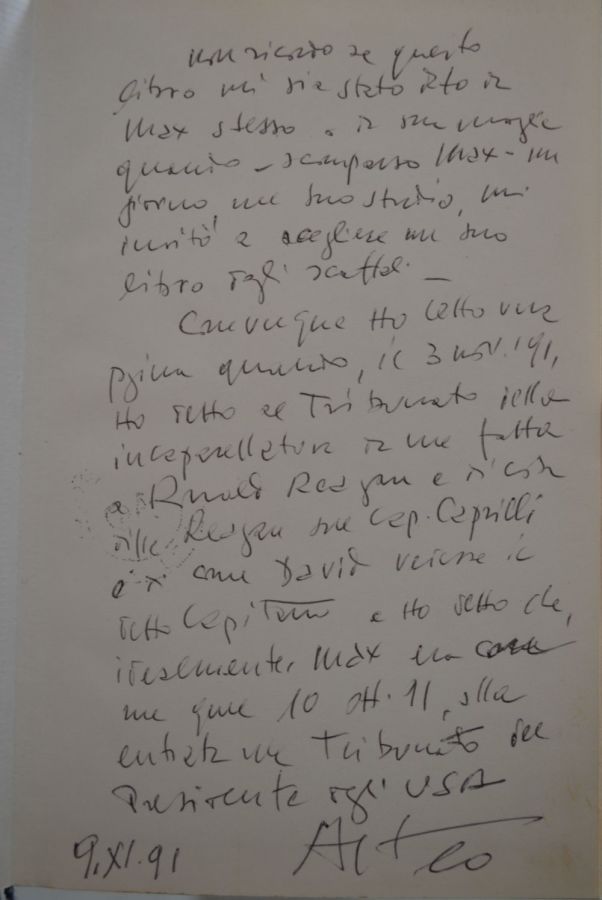 non ricordo se questo
libro mi sia stato dato da
Max stesso o da sua moglie
quando - scomparso Max - un
giorno, nel suo studio, mi
invitò a scegliere un suo
libro dagli scaffali -
Comunque ho letto una
pagina quando, il 3 nov. '91,
ho detto al Tribunato della
incaparellatura da me fatta
a Ronald Reagan e di
Reagan sul Cap. Caprilli
e di come David vecise il
detto Capitano e ho detto che,
idealmente, Max era
me quel 10 ott. 11, alla
entrata nel Tribunato del
Presidente degli USA
9.XI.91 Alteo